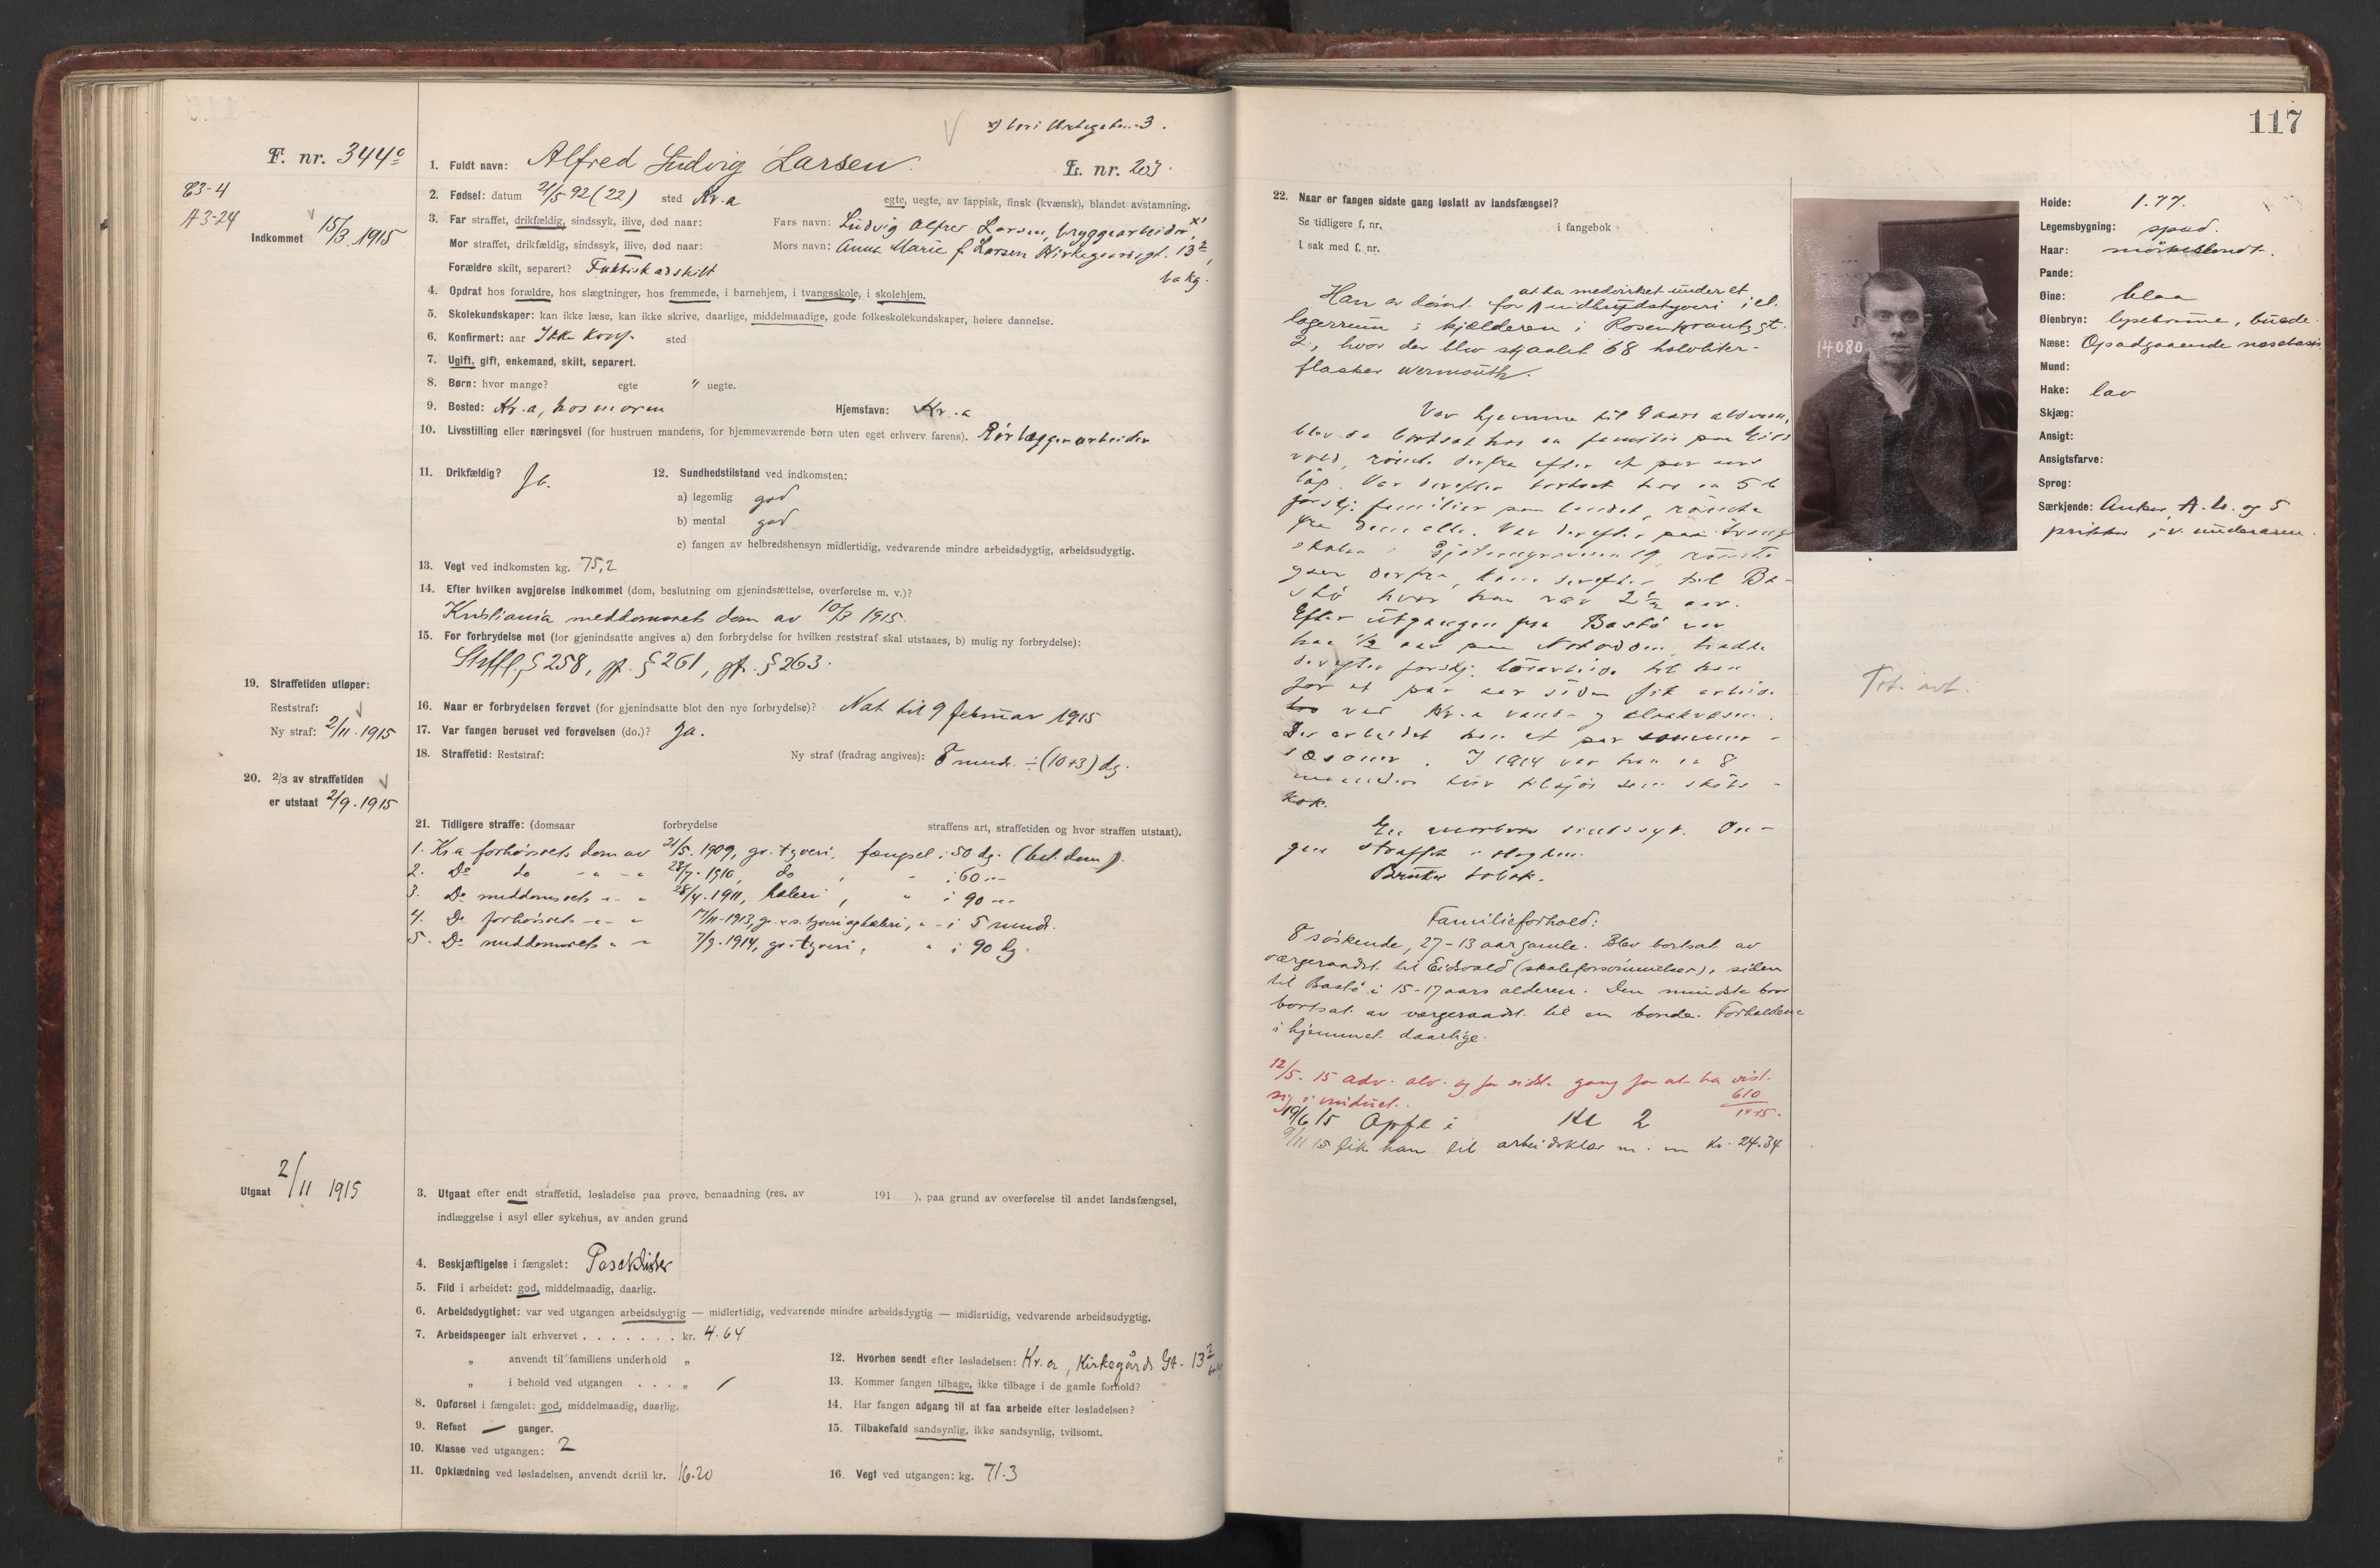 117
F. nr. 344⁰
E3-4
A 3-24
Indkommet 15/3 1915
x) bor i Urtegaten 3.
1. Fuldt navn: Alfred Ludvig Larsen.
L. nr. 203.
2. Fødsel: datum 21/5 92 (22) sted Kr.a egte, uegte, av lappisk, finsk (kvænsk), blandet avstamning.
3. Far straffet, drikfældig, sindssyk, ilive, død naar: Fars navn: Ludvig Alfred Larsen, bryggearbeider x)
Mor straffet, drikfældig, sindssyk, ilive, død naar: Mors navn: Anna Marie f. Larsen Kirkegaardsgt. 13²,
Forældre skilt, separert? Faktisk adskilt bakg.
4. Opdrat hos forældre, hos slægtninger, hos fremmede, i barnehjem, i tvangsskole, i skolehjem.
5. Skolekundskaper: kan ikke læse, kan ikke skrive, daarlige, middelmaadige, gode folkeskolekundskaper, høiere dannelse.
6. Konfirmert: aar Ikke konf. sted
7. Ugift, gift, enkemand, skilt, separert.
8. Børn: hvor mange? egte " uegte.
9. Bosted: Kr.a, hos moren Hjemstavn: Kr.a
10. Livsstilling eller næringsvei (for hustruen mandens, for hjemmeværende børn uten eget erhverv farens). Rørlæggerarbeider
11. Drikfældig? Ja.
12. Sundhedstilstand ved indkomsten:
a) legemlig god
b) mental god
c) fangen av helbredshensyn midlertidig, vedvarende mindre arbeidsdygtig, arbeidsudygtig.
13. Vegt ved indkomsten kg. 75,2
14. Efter hvilken avgjørelse indkommet (dom, beslutning om gjenindsættelse, overførelse m. v.)?
Kristiania meddomsrets dom av 10/3 1915.
15. For forbrydelse mot (for gjenindsatte angives a) den forbrydelse for hvilken reststraf skal utstaaes, b) mulig ny forbrydelse):
Strffl. § 258, jf. § 261, jf. § 263.
19. Straffetiden utløper:
Reststraf:
Ny straf: 2/11. 1915
16. Naar er forbrydelsen forøvet (for gjenindsatte blot den nye forbrydelse)? Nat til 9 februar 1915
17. Var fangen beruset ved forøvelsen (do.)? Ja.
18. Straffetid: Reststraf: Ny straf (fradrag angives): 8 mndr. ÷ (10+3) dg.
20. 2/3 av straffetiden
er utstaat 2/9. 1915
21. Tidligere straffe: (domsaar forbrydelse straffens art, straffetiden og hvor straffen utstaat).
1. Kr.a forhørsrets dom av 21/5. 1909, gr. tyveri, fængsel i 50 dg. (bet. dom).
2. Do do - " - " 28/7. 1910, do, " i 60 "
3. Do meddomsrets - " - " 28/4. 1911, heleri, " i 90 "
4. Do forhørsrets - " - " 17/11-1913, gr. + s. tyveri og heleri, " - i 5 mndr.
5. Do meddomsrets " - " 7/9. 1914, gr. tyveri, " i 90 dg.
Utgaat 2/11 1915
3. Utgaat efter endt straffetid, løsladelse paa prøve, benaadning (res. av 191 ), paa grund av overførelse til andet landsfængsel,
indlæggelse i asyl eller sykehus, av anden grund
4. Beskjæftigelse i fængslet: Poseklister
5. Flid i arbeidet: god, middelmaadig, daarlig.
6. Arbeidsdygtighet: var ved utgangen arbeidsdygtig — midlertidig, vedvarende mindre arbeidsdygtig — midlertidig, vedvarende arbeidsudygtig.
7. Arbeidspenger ialt erhvervet . . . . . . . kr. 4.64
" anvendt til familiens underhold "
" i behold ved utgangen . . . " /
8. Opførsel i fængslet: god, middelmaadig, daarlig.
9. Refset — ganger.
10. Klasse ved utgangen: 2
11. Opklædning ved løsladelsen, anvendt dertil kr. 16.20
12. Hvorhen sendt efter løsladelsen: Kr.a, Kirkegårds Gt. 13²
13. Kommer fangen tilbage, ikke tilbage i de gamle forhold?
14. Har fangen adgang til at faa arbeide efter løsladelsen?
15. Tilbakefald sandsynlig, ikke sandsynlig, tvilsomt.
16. Vegt ved utgangen: kg. 71.3
22. Naar er fangen sidste gang løslatt av landsfængsel?
Se tidligere f. nr. i fangebok
I sak med f. nr.
Han er dømt for at ha medvirket under et indbrudstyveri i et
lagerrum i kjælderen i Rosenkrantzgt.
2, hvor der blev stjaalet 68 halvliter-
flasker wermouth.
Var hjemme til 9 aars alderen,
blev da bortsat hos en familie paa Eids
vold, rømte derfra efter et par aars
løp. Var derefter bortsat hos ca 5 6
forskj. familier paa landet, rømte
fra dem alle. Var derefter paa tvangs
skolen i Gjetemyrsveien 19, rømte
derfra, kom derefter til Ba-
stø hvor han var 2 1/2 aar.
Efter utgangen fra Bastø var
han 1/2 aar paa Notodden, hadde
derefter forskj. løsarbeide til han
for et par aar siden fik arbeide
ved Kr.a vand- og kloakvæsen.
Der arbeidet han et par sommer-
sæsoner. I 1914 var han ca 8
maaneder tilsjøs som skibs-
kok.
En morbror sindssyk. In-
gen straffet i slegten.
Bruker tobak.
Familieforhold:
8 søskende, 27-13 aar gamle. Blev bortsat av
værgeraadet til Eidsvold (skoleforsømmelser), siden
til Bastø i 15-17 aars alderen. Den mindste bror
bortsat av værgeraadet til en bonde. Forholdene
i hjemmet daarlige.
12/5. 15 adv. alv. og for sidste gang for at ha vist
sig i vinduet. 610
19/6 15 Opfl i Kl 2
9/11 15 fik han til arbeidsklær m. m Kr. 24.34
14080
Høide: 1.77.
Legemsbygning: spæd.
Haar: mørkeblondt.
Pande:
Øine: blaa
Øienbryn: lysebrune, buede.
Næse: Opadgaaende næsebasis
Mund:
Hake: lav
Skjæg:
Ansigt:
Ansigtsfarve:
Sprog:
Særkjende: Anker, A. L. og 5
prikker i v. underarm.